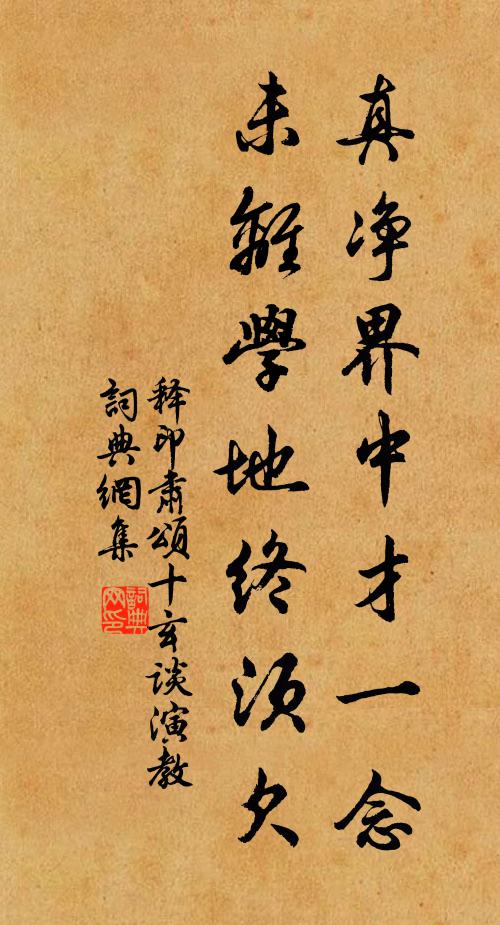 真净界中才一念
未離學地終須欠
释印肅頌十玄談演教
詞典網集
詞典網印